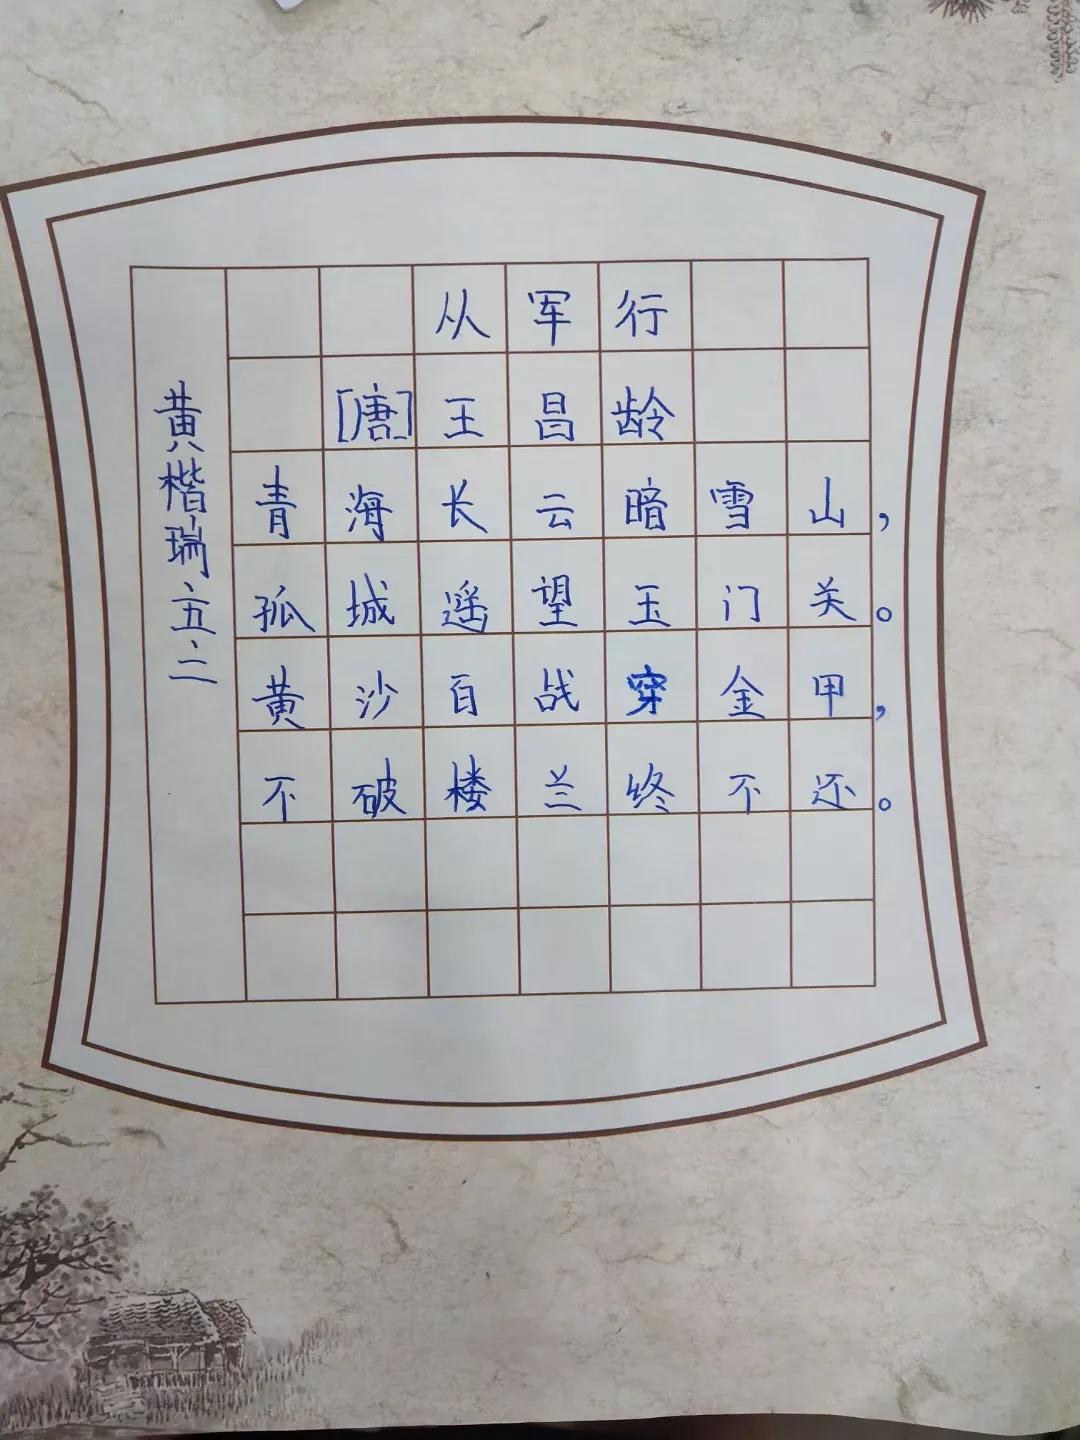 从军行
[唐]王昌龄
青海长云暗雪山，
孤城遥望玉门关。
黄沙百战穿金甲，
不破楼兰终不还。
黄楷瑞、五、二